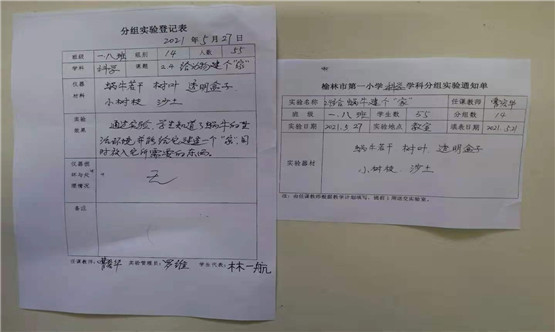 分组实验登记表
2021年5月27日
班级 一.八班 组别 14 人数 55
学科 科学 课题 2.4 给动物建个"家"
仪器材料 蜗牛若干 树叶 透明盒子
小树枝 沙土
实验效果 通过实验,学生知道了蜗牛的生
活环境,并能给它建造一个"家",同
时放入它所需要的东西。
仪器损坏与处理情况 无
备注
任课教师: 实验管理员:罗维 学生代表:林一航
榆林市第一小学科学学科分组实验通知单
实验名称 给蜗牛建个"家" 任课教师
班级 一.八班 学生数 55 分组数 14
实验日期 2021.5.27 实验地点 教室 填表日期 2021.5.21
实验器材 蜗牛若干 树叶 透明盒子
小树枝 沙土
注:由任课教师根据教学计划填写,提前1周送交实验室。